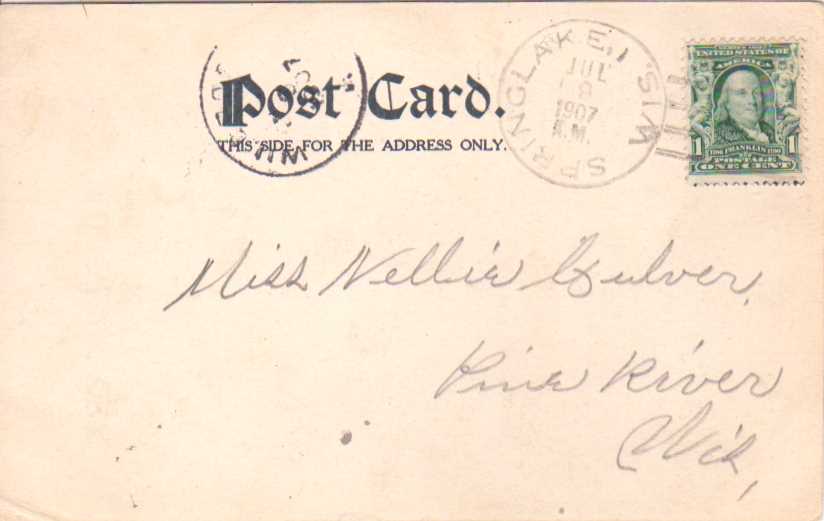 Post Card.
THIS SIDE FOR THE ADDRESS ONLY.
SPRINGLAKE, WIS.
JUL
8
1907
A.M.
SERIES 1902
UNITED STATES OF
AMERICA
1 1706 FRANKLIN 1790 1
POSTAGE
ONE CENT
Miss Nellie Culver,
Pine River
Wis,